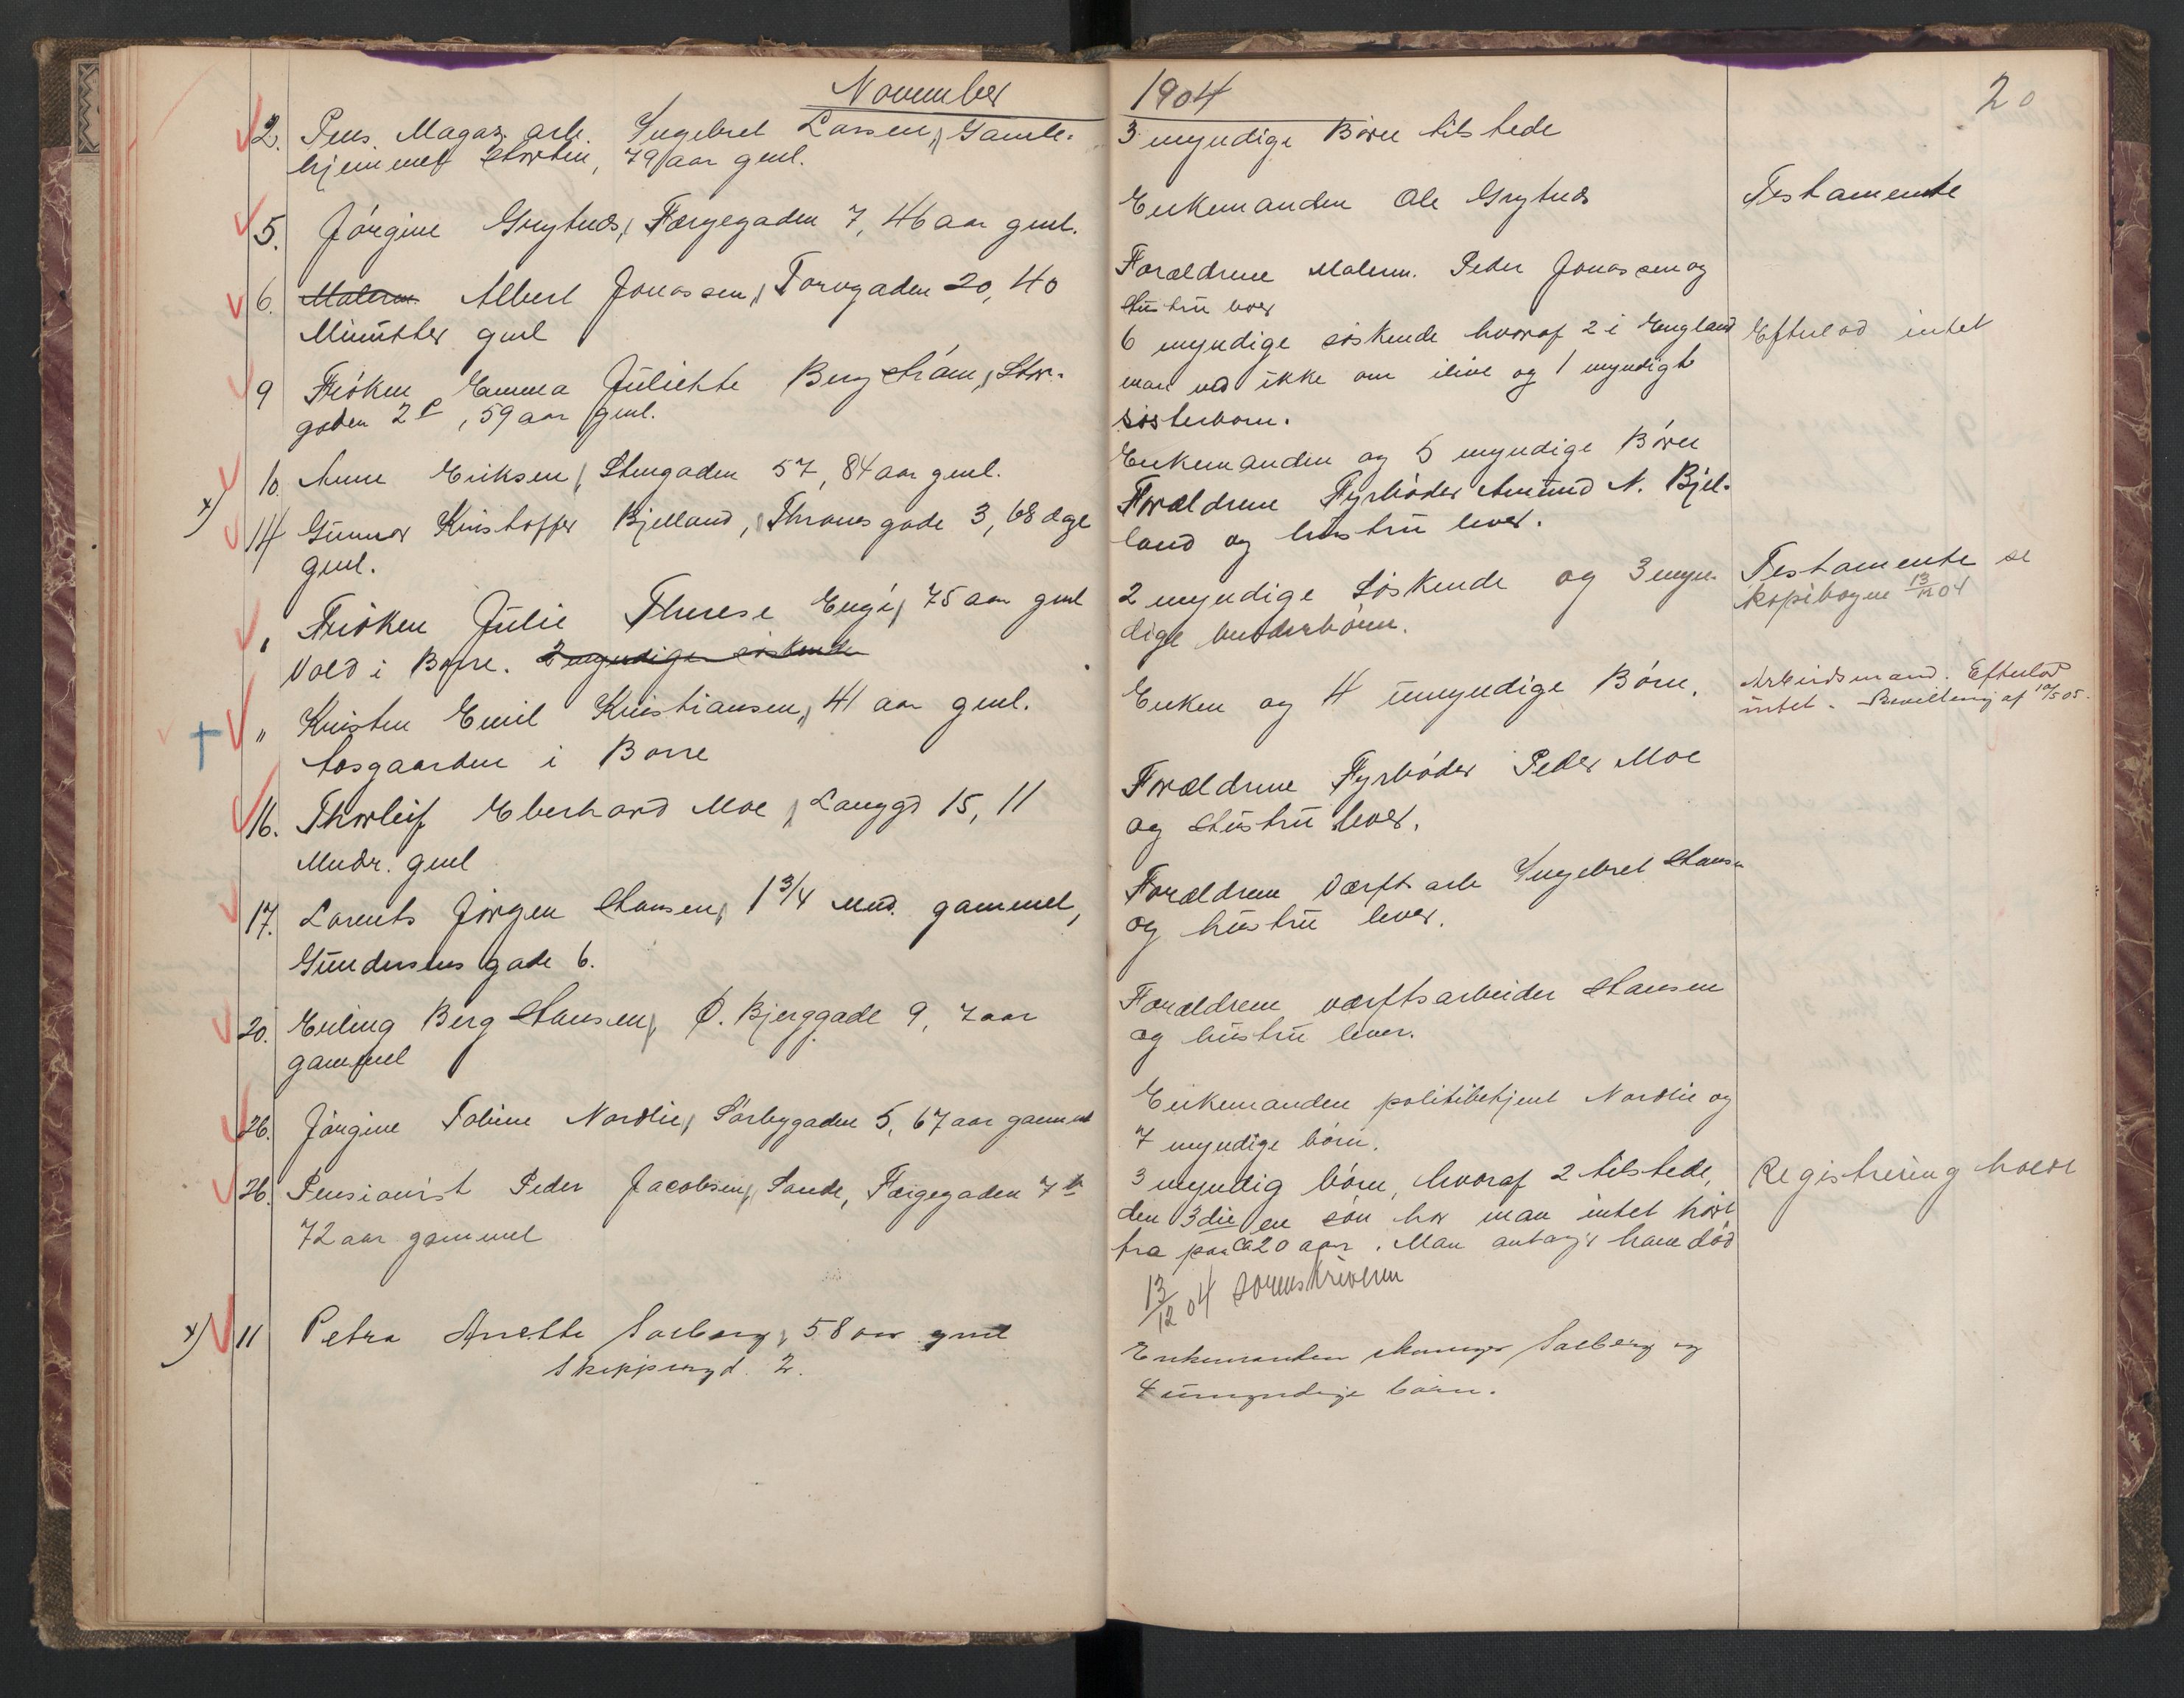 November
2. Pens. Magaz. arb. Ingebret Larsen, Gamle-
hjemmet Horten, 79 aar gml.
5. Jørgine Grytnæs, Færgegaden 7, 46 aar gml.
6. Malerm. Albert Jonassen, Torvgaden 20, 40
Minutter gml
9 Frøken Emma Juliette Bergstrøm, Stor-
gaden 2 c, 59 aar gml.
10. Anne Eriksen, Stengaden 57, 84 aar gml.
x) 14 Gunnar Kristoffer Bjelland, Thranes gade 3, 68 dge
gml.
" Frøken Julie Therese Engø, 75 aar gml
Vold i Borre. 2 myndige søskende
" Kristen Emil Kristiansen, 41 aar gml.
Aasgaarden i Borre
16. Thorleif Eberhard Moe, Langgd 15, 11
Mndr. gml
17. Lorents Jørgen Hansen, 1 3/4 Mnd. gammel,
Gundersens gade 6.
20. Erling Berg Hansen, Ø. Bjerggade 9, 7 aar
gammel
26. Jørgine Tobine Nordlie, Sørbygaden 5, 67 aar gammel
26. Pensionist Peder Jacobsen, Sande, Færgegaden 7 b
72 aar gammel
x) 11 Petra Anette Solberg, 58 aar gml
Skippergd. 2.
1904
20
3 myndige Børn tilstede
Enkemanden Ole Grytnæs
Testamente
Forældrene Malerm. Peder Jonassen og
Hustru lever
6 myndige søskende hvoraf 2 i England
Efterlod intet
man ved ikke om ilive og 1 myndigt
søsterbarn.
Enkemanden og 5 myndige Børn
Forældrene Fyrbøder Amund N. Bjel-
land og hustru lever.
2 myndige Søskende og 3 myn-
dige broderbørn.
Testamente se
kopibogen 13/12 04
Enken og 4 umyndige Børn.
Arbeidsmand. Efterlod
intet. Bevilling af 10/5 05.
Forældrene Fyrbøder Peder Moe
og Hustru lever.
Forældrene Værftsarb Ingebret Hansen
og hustru lever.
Forældrene værftsarbeider Hansen
og hustru lever.
Enkemanden politibetjent Nordlie og
7 myndige børn.
3 myndig børn, hvoraf 2 tilstede,
Registrering holdt
den 3die en søn har man intet hørt
fra paa ca 20 aar. Man antager ham død
13/12 04 Sorenskriveren
Enkemanden Solberg og
4 umyndige børn.